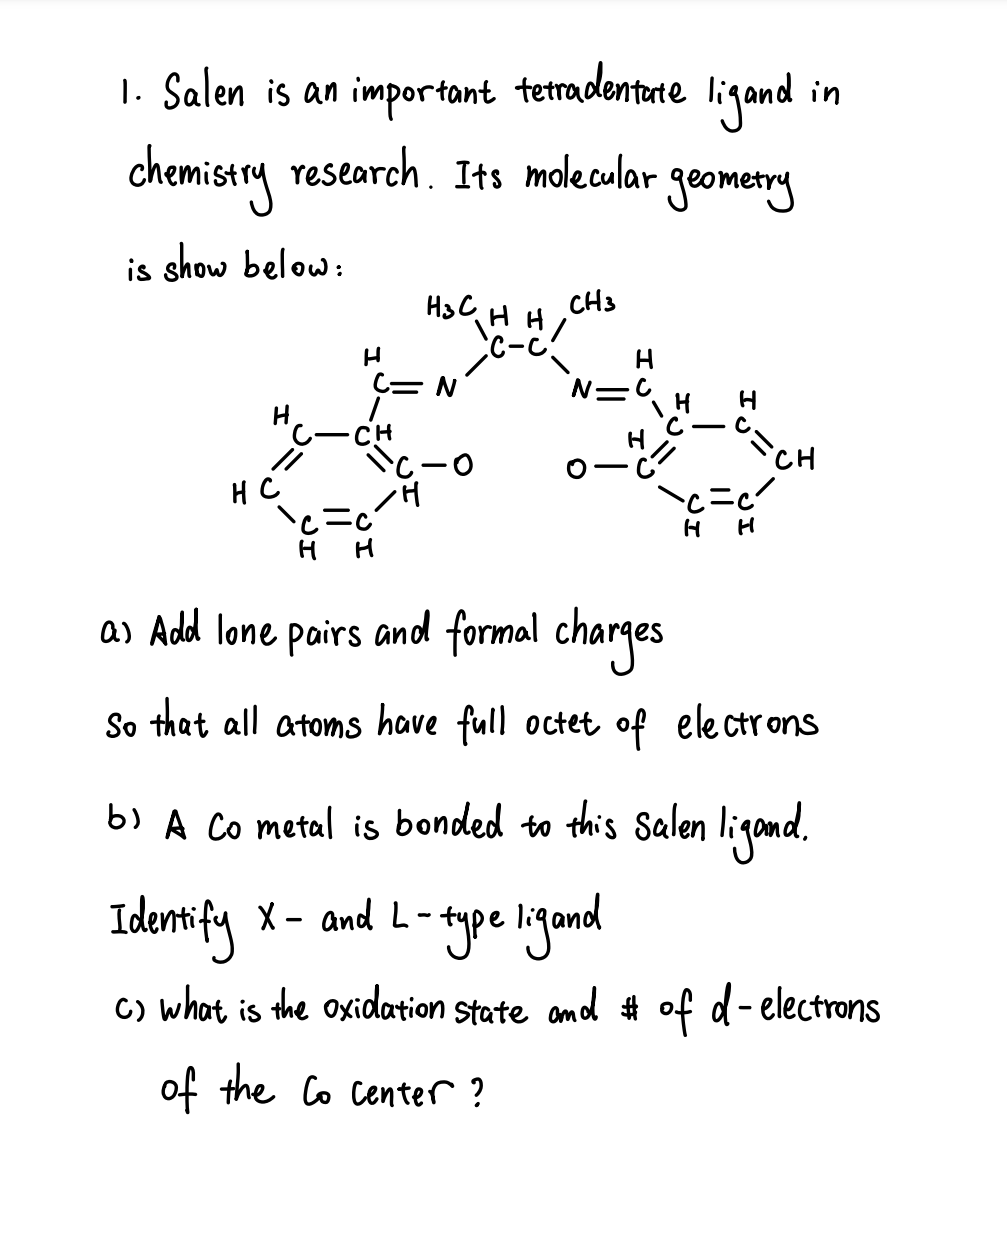 1. Salen is an important tetradentate ligand in
chemistry research. Its molecular geometry
is show below:
H3C H H CH3
C-C
H H
C=N N=C
H H H
C-CH H C-C
C-O O-C CH
HC H
C=C C=C
H H H H
a) Add lone pairs and formal charges
So that all atoms have full octet of electrons
b) A Co metal is bonded to this Salen ligand.
Identify X- and L-type ligand
c) what is the oxidation state and # of d-electrons
of the Co center?